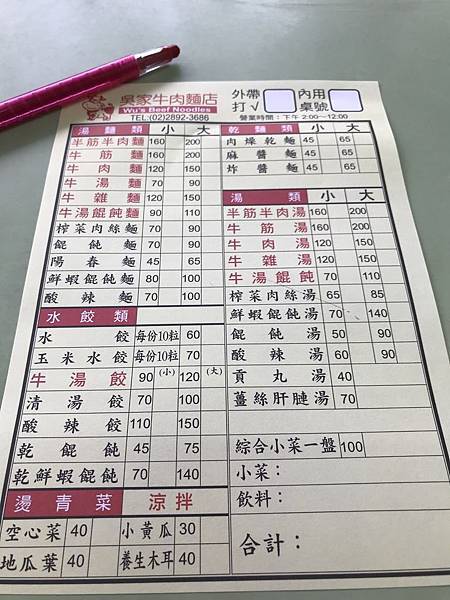 吳家牛肉麵店
Wu's Beef Noodles
TEL:(02)2892-3686
外帶打√
內用桌號
營業時間：下午 2:00～12:00
湯麵類 小 大
半筋半肉麵 160 200
牛筋麵 160 200
牛肉麵 120 150
牛湯麵 70 90
牛雜麵 120 150
牛湯餛飩麵 90 110
榨菜肉絲麵 70 90
餛飩麵 70 90
陽春麵 45 65
鮮蝦餛飩麵 80 100
酸辣麵 70 100
水餃類
水餃 每份10粒 60
玉米水餃 每份10粒 70
牛湯餃 90 (小) 120 (大)
清湯餃 70 100
酸辣餃 70 110
乾餛飩 45 75
乾鮮蝦餛飩 70 140
燙青菜 涼拌
空心菜 40 小黃瓜 30
地瓜葉 40 養生木耳 40
乾麵類 小 大
肉燥乾麵 45 65
麻醬麵 45 65
炸醬麵 45 65
湯類 小 大
半筋半肉湯 160 200
牛筋湯 160 200
牛肉湯 120 150
牛雜湯 120 150
牛湯餛飩 70 110
榨菜肉絲湯 65 85
鮮蝦餛飩湯 70 140
餛飩湯 50 90
酸辣湯 60 90
貢丸湯 40
薑絲肝腱湯 70
綜合小菜一盤 100
小菜：
飲料：
合計：